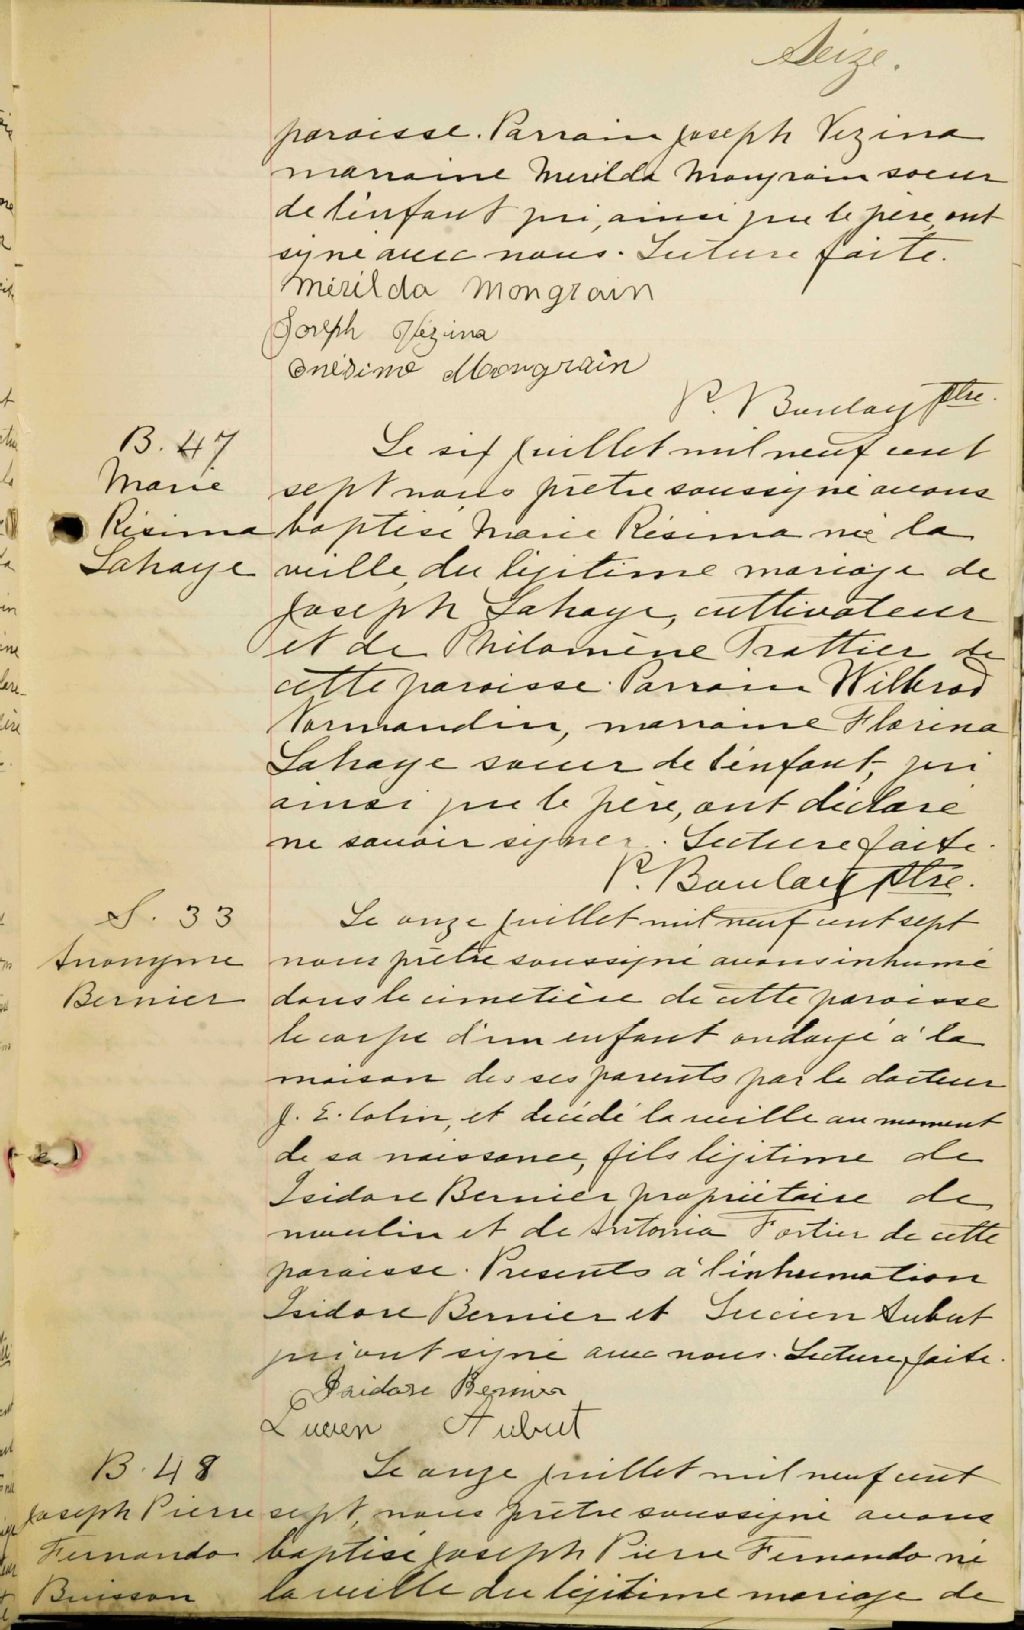 Seize.
paroisse. Parrain Joseph Vezina
marraine Merilda Mongrain soeur
de l'enfant qui, ainsi que le père, ont
signé avec nous. Lecture faite.
Mérilda Mongrain
Joseph Vézina
Onésime Mongrain
P. Boulay Ptre.
B. 47
Marie
Résima
Lahaye
Le six juillet mil neuf cent
sept nous prêtre soussigné avons
baptisé Marie Résima née la
veille, du légitime mariage de
Joseph Lahaye, cultivateur
et de Philomène Trottier de
cette paroisse. Parrain Wilbrod
Normandin, marraine Florina
Lahaye soeur de l'enfant, qui
ainsi que le père, ont déclaré
ne savoir signer. Lecture faite.
P. Boulay Ptre.
S. 33
Anonyme
Bernier
Le onze juillet mil neuf cent sept
nous prêtre soussigné avons inhumé
dans le cimetière de cette paroisse
le corps d'un enfant ondoyé à la
maison des ses parents par le docteur
J. E. Colin, et décédé la veille au moment
de sa naissance, fils légitime de
Isidore Bernier propriétaire de
moulin et de Antonia Fortier de cette
paroisse. Presents à l'inhumation
Isidore Bernier et Lucien Aubut
qui ont signé avec nous. Lecture faite.
Isidore Bernier
Lucien Aubut
B. 48
Joseph Pierre
Fernando
Buisson
Le onze juillet mil neuf cent
sept, nous prêtre soussigné avons
baptisé Joseph Pierre Fernando né
la veille du légitime mariage de